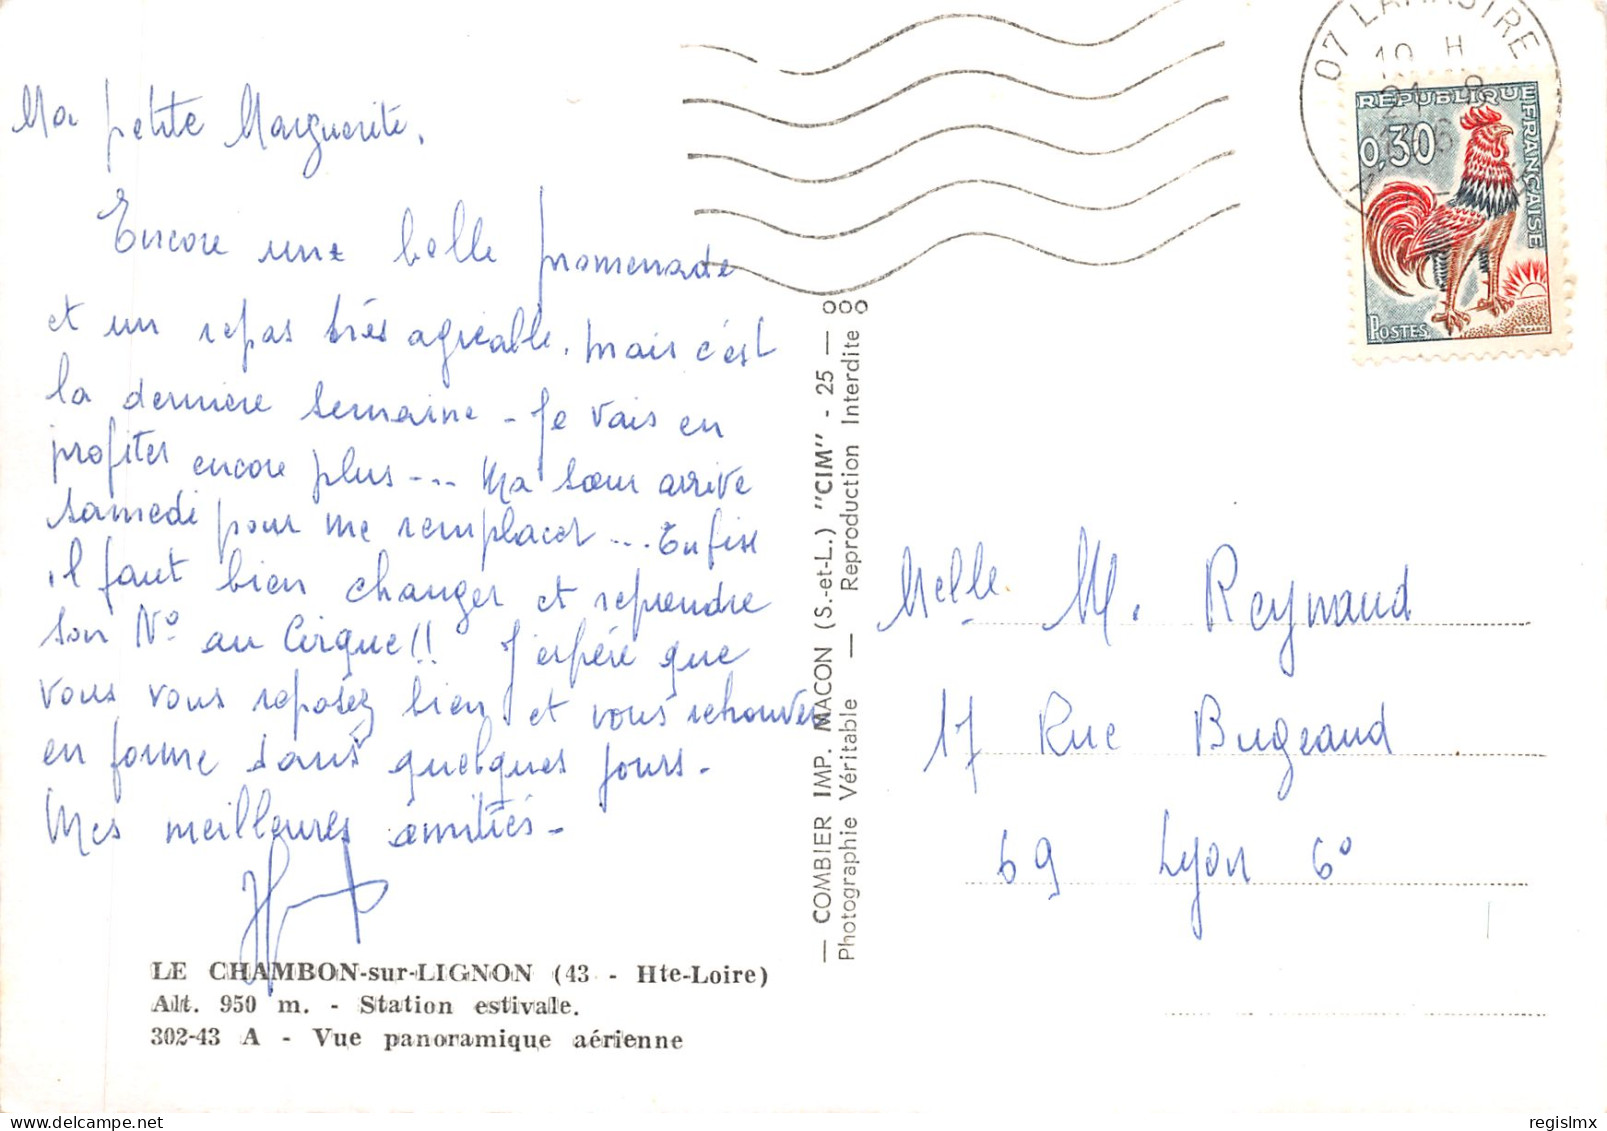 Ma petite Marguerite.
Encore une belle promenade
et un repas très agréable. Mais c'est
la dernière semaine - Je vais en
profiter encore plus --- Ma sœur arrive
samedi pour me remplacer --- Enfin
il faut bien changer et reprendre
son N° au Cirque!! J'espère que
vous vous reposez bien et vous retrouver
en forme dans quelques jours -
Mes meilleures amitiés -
LE CHAMBON-sur-LIGNON (43 - Hte-Loire)
Alt. 950 m. - Station estivale.
302-43 A - Vue panoramique aérienne
— COMBIER IMP. MACON (S.-et-L.) "CIM" - 25 — 000
Photographie Véritable — Reproduction Interdite
07 LAMASTRE
10 H
RÉPUBLIQUE FRANÇAISE
0,30
POSTES
DECARIS
Melle M. Reynaud
17 Rue Bugeaud
69 Lyon 6°
regislmx